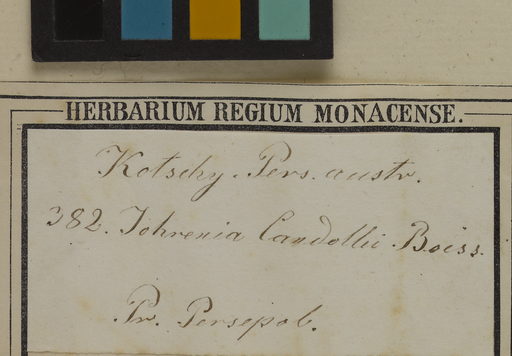 HERBARIUM REGIUM MONACENSE.
Kotschy. Pers. austr.
382. Johrenia Candollii Boiss.
Pr. Persepol.